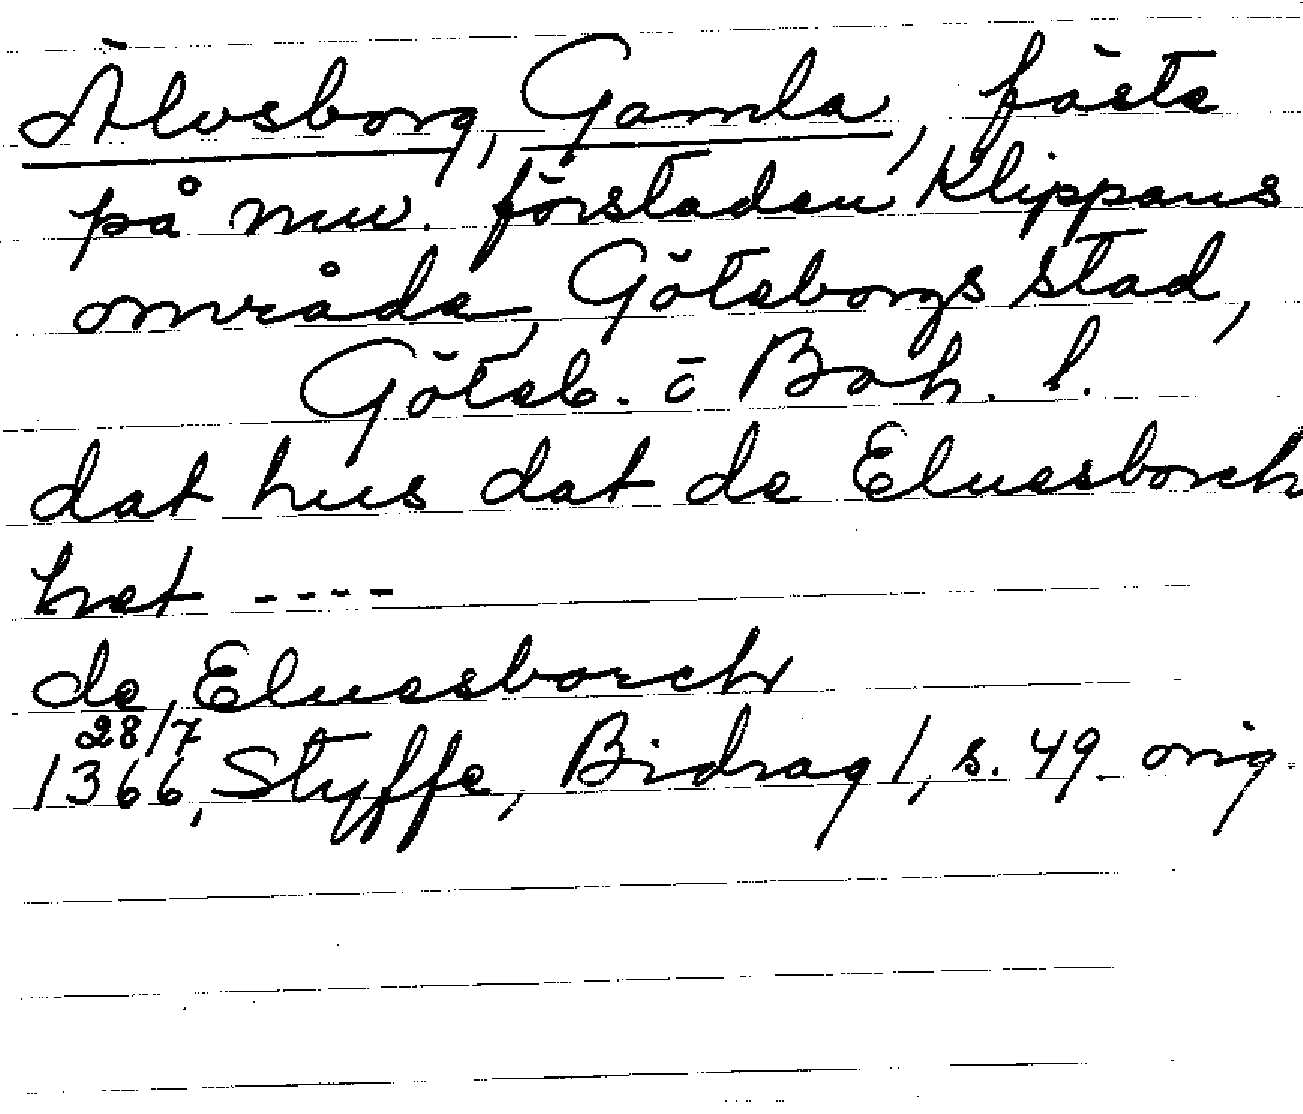 Älvsborg, Gamla, fäste
på nuv. förstaden Klippans
område, Göteborgs stad,
Göteb. o Boh. l.
dat hus dat de Eluesborch
het ----
de Eluesborch
28/7
1366, Styffe, Bidrag 1, s. 49. orig.